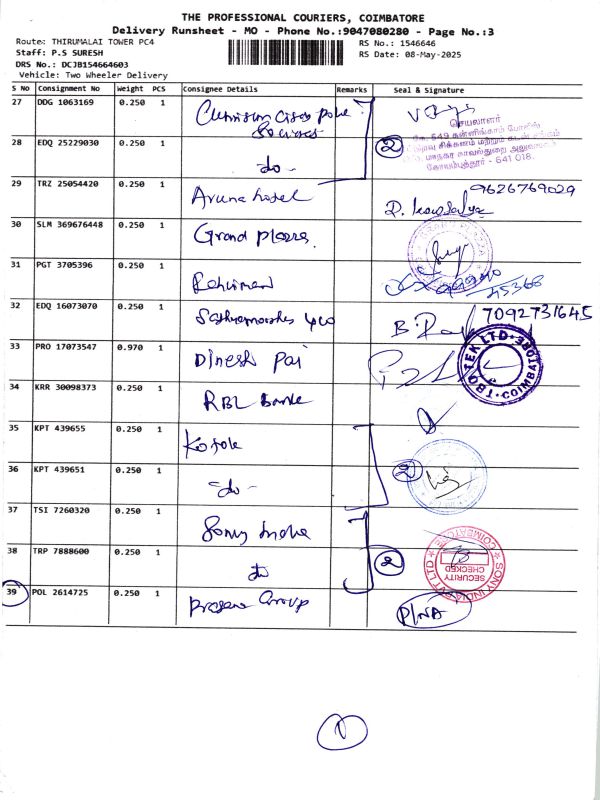 THE PROFESSIONAL COURIERS, COIMBATORE
Delivery Runsheet - MO - Phone No.:9047080280 - Page No.:3
Route: THIRUMALAI TOWER PC4
Staff: P.S SURESH
DRS No.: DCJB154664603
Vehicle: Two Wheeler Delivery
RS No.: 1546646
RS Date: 08-May-2025
S No Consignment No Weight PCS Consignee Details Remarks Seal & Signature
27 DDG 1063169 0.250 1
செயலாளர்
28 EDQ 25229030 0.250 1 -do- 2
கோயமுத்தூர் - 641 018.
29 TRZ 25054420 0.250 1 Aruna hotel 9626769029
30 SLM 369676448 0.250 1 Grand plazza.
31 PGT 3705396 0.250 1
45368
32 EDQ 16073070 0.250 1 7092731645
33 PRO 17073547 0.970 1 Dinesh Pai
TEK LTD
COIMBATORE
34 KRR 30098373 0.250 1 RBL Banke
35 KPT 439655 0.250 1 Kotak
36 KPT 439651 0.250 1 -do- 2
37 TSI 7260320 0.250 1 Sony India
38 TRP 7888600 0.250 1 do 2
SONY INDIA PVT LTD
COIMBATORE
SECURITY
CHECKED
39 POL 2614725 0.250 1 Group P/NA